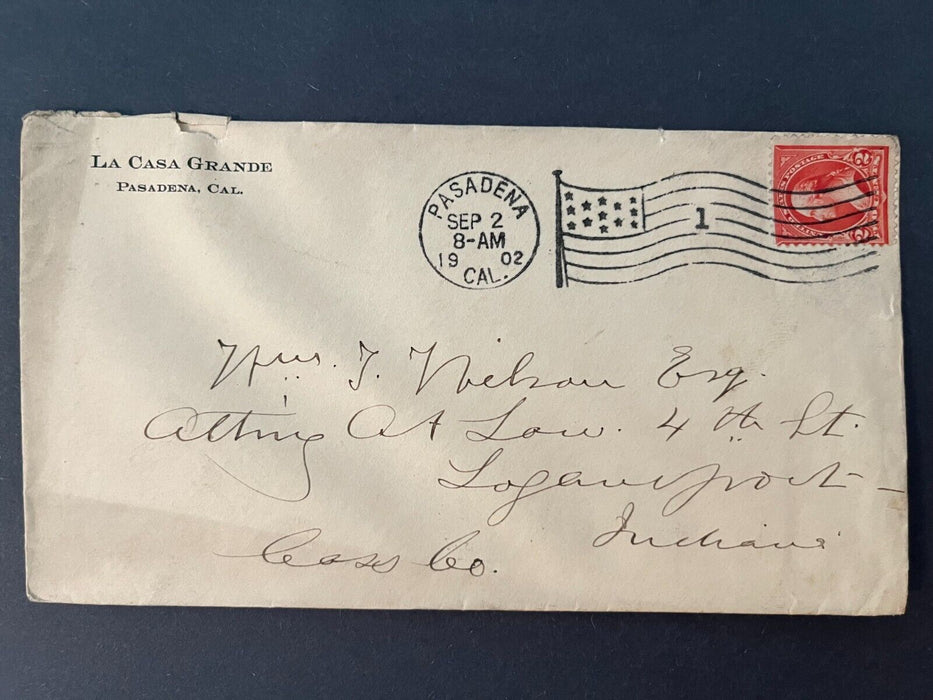 LA CASA GRANDE
PASADENA, CAL.
PASADENA
SEP 2
8-AM
19 02
CAL.
1
2 2
Wm. T. Wilson Esq.
Att'ng At Law. 4th St.
Logansport
Indiana
Cass Co.